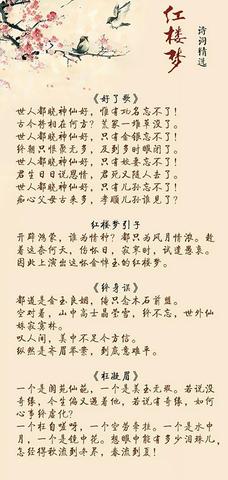 红楼梦
诗词精选
《好了歌》
世人都晓神仙好，惟有功名忘不了！
古今将相在何方？荒冢一堆草没了。
世人都晓神仙好，只有金银忘不了！
终朝只恨聚无多，及到多时眼闭了。
世人都晓神仙好，只有姣妻忘不了！
君生日日说恩情，君死又随人去了。
世人都晓神仙好，只有儿孙忘不了！
痴心父母古来多，孝顺儿孙谁见了？
红楼梦引子
开辟鸿蒙，谁为情种？都只为风月情浓。趁
着这奈何天，伤怀日，寂寥时，试遣愚衷。
因此上演出这怀金悼玉的红楼梦。
《终身误》
都道是金玉良姻，俺只念木石前盟。
空对着，山中高士晶莹雪，终不忘，世外仙
姝寂寞林。
叹人间，美中不足今方信。
纵然是齐眉举案，到底意难平。
《枉凝眉》
一个是阆苑仙葩，一个是美玉无瑕。若说没
奇缘，今生偏又遇着他，若说有奇缘，如何
心事终虚化？
一个枉自嗟呀，一个空劳牵挂。一个是水中
月，一个是镜中花。想眼中能有多少泪珠儿，
怎经得秋流到冬尽，春流到夏！